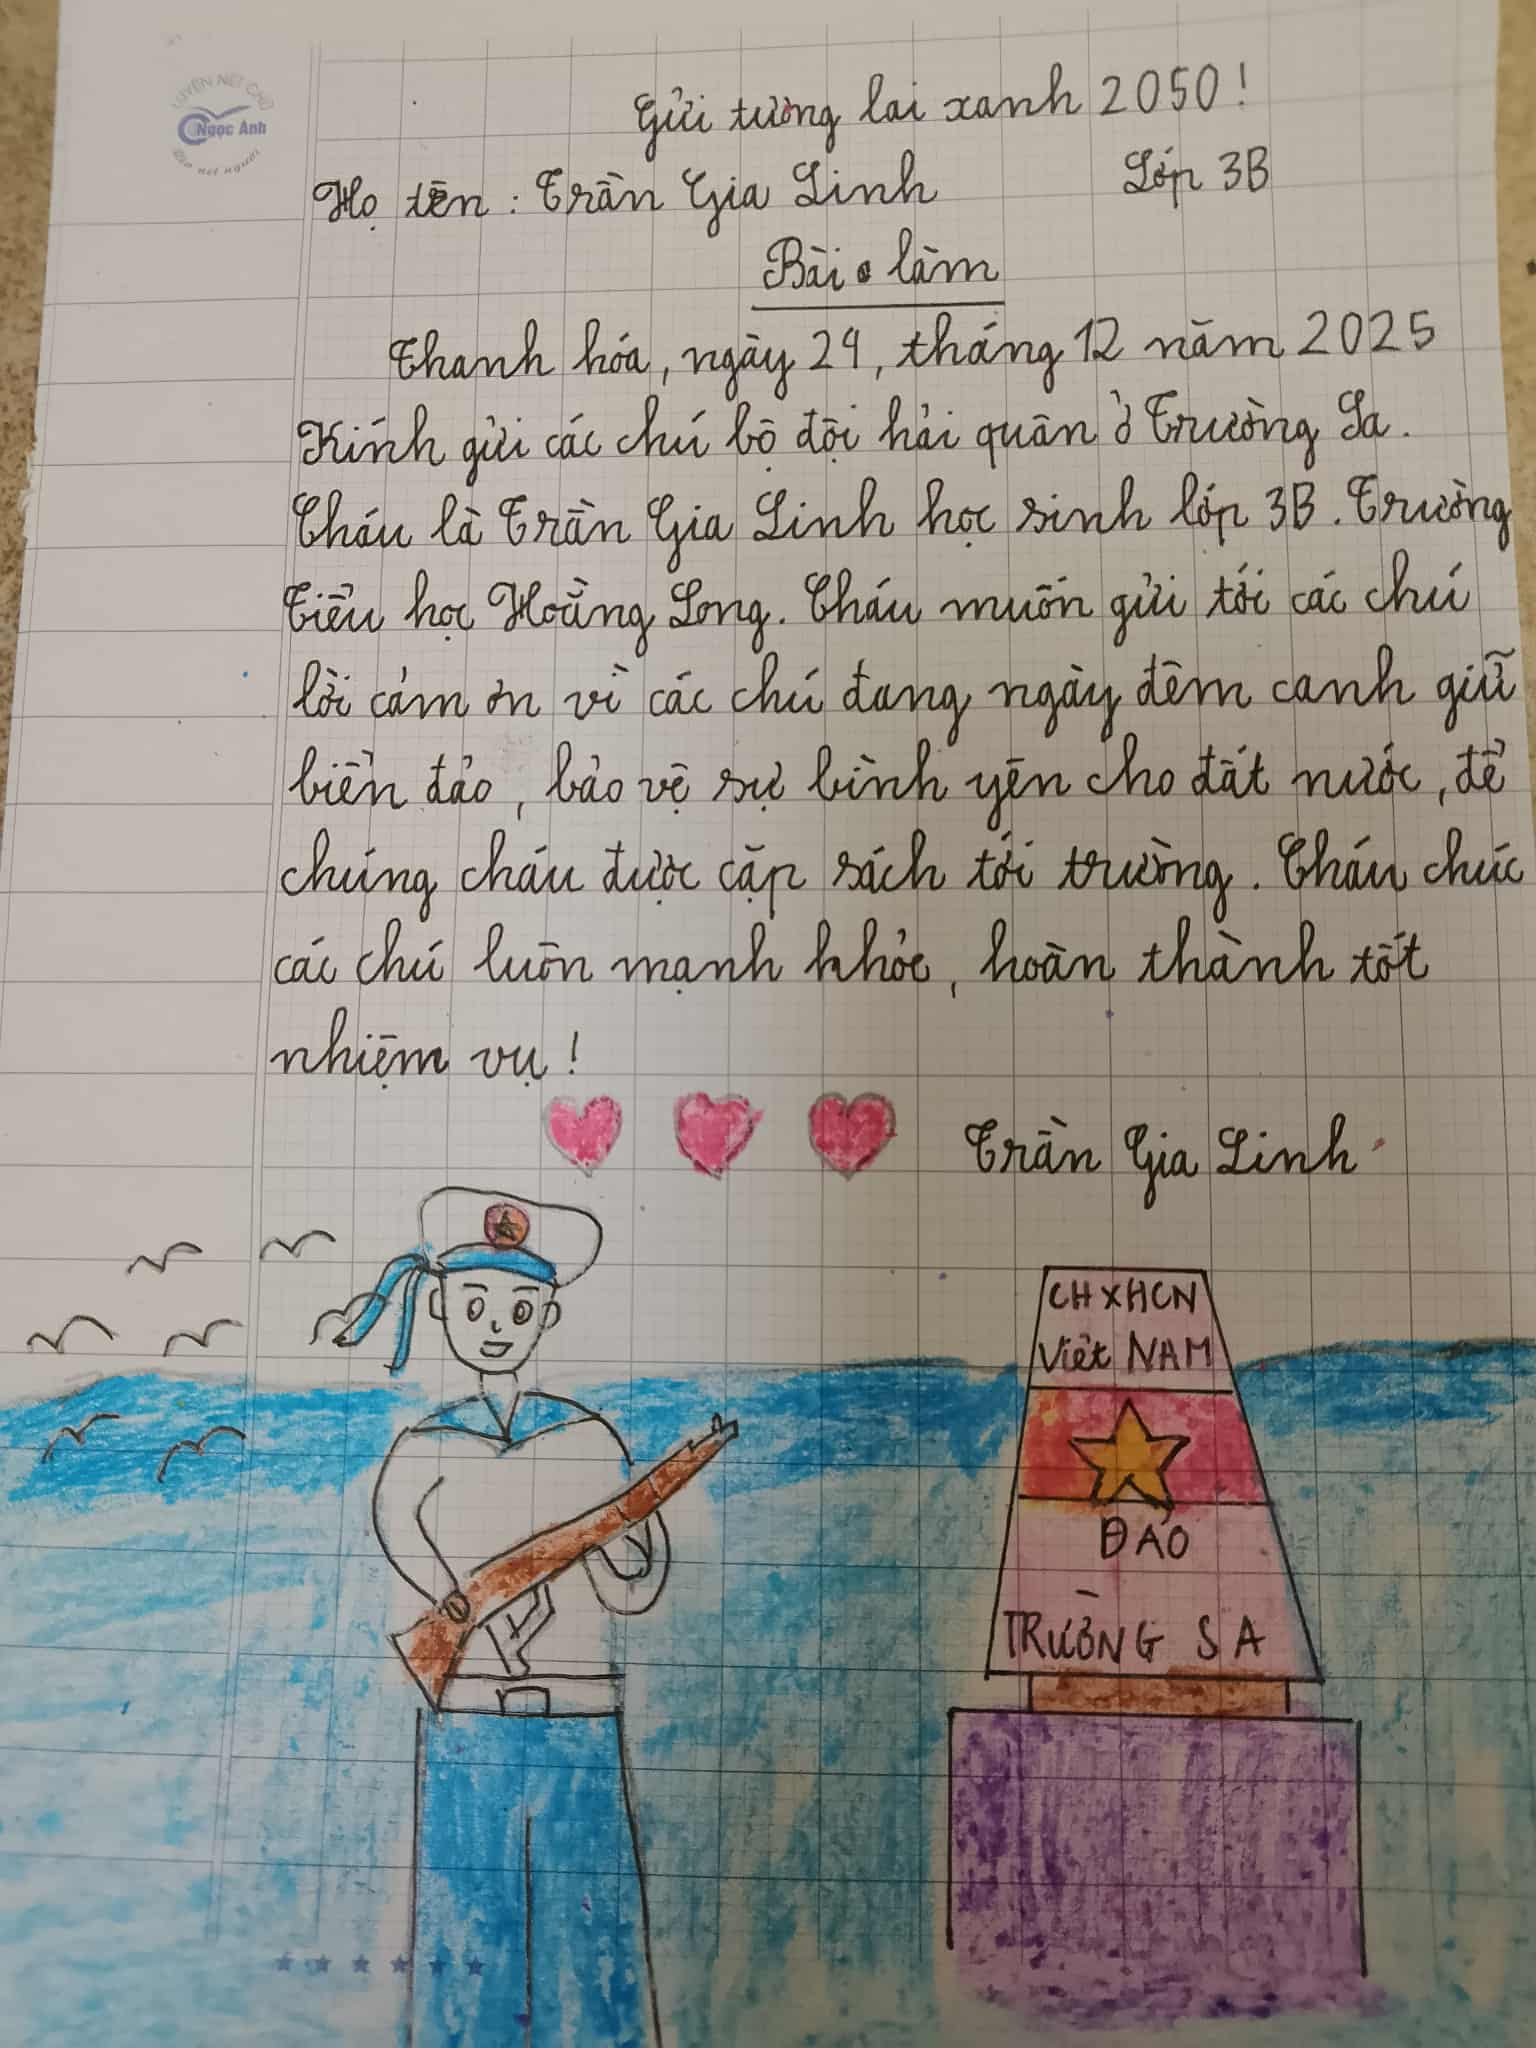 LUYỆN NÉT CHỮ
Ngọc Ánh
Rèn nết người
Gửi tương lai xanh 2050!
Họ tên: Trần Gia Linh Lớp 3B
Bài làm
Thanh hóa, ngày 24, tháng 12 năm 2025
Kính gửi các chú bộ đội hải quân ở Trường Sa.
Cháu là Trần Gia Linh học sinh lớp 3B. Trường
Tiểu học Hoằng Long. Cháu muốn gửi tới các chú
lời cảm ơn vì các chú đang ngày đêm canh giữ
biển đảo, bảo vệ sự bình yên cho đất nước, để
chúng cháu được cặp sách tới trường. Cháu chúc
các chú luôn mạnh khỏe, hoàn thành tốt
nhiệm vụ!
Trần Gia Linh
CHXHCN
Việt NAM
ĐẢO
TRƯỜNG SA